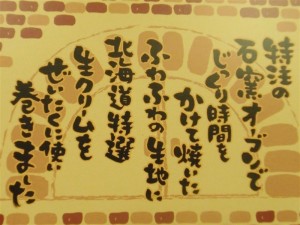 特注の
石窯オーブンで
じっくり時間を
かけて焼いた
ふわふわの生地に
北海道特選
生クリームを
ぜいたくに使い
巻きました